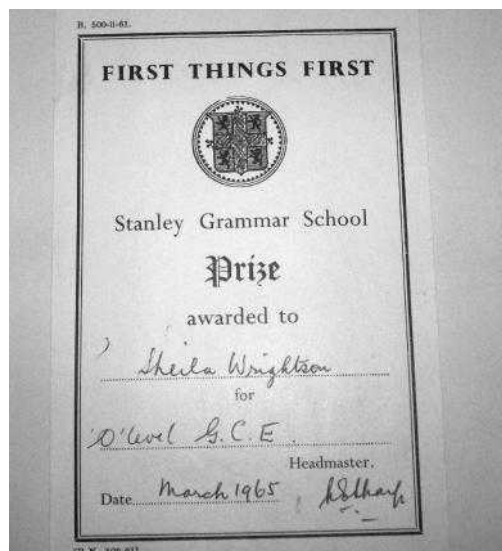 B. 500-11-61.
FIRST THINGS FIRST
Stanley Grammar School
Prize
awarded to
Sheila Wrightson
for
'O' level G.C.E.
Headmaster.
Date March 1965